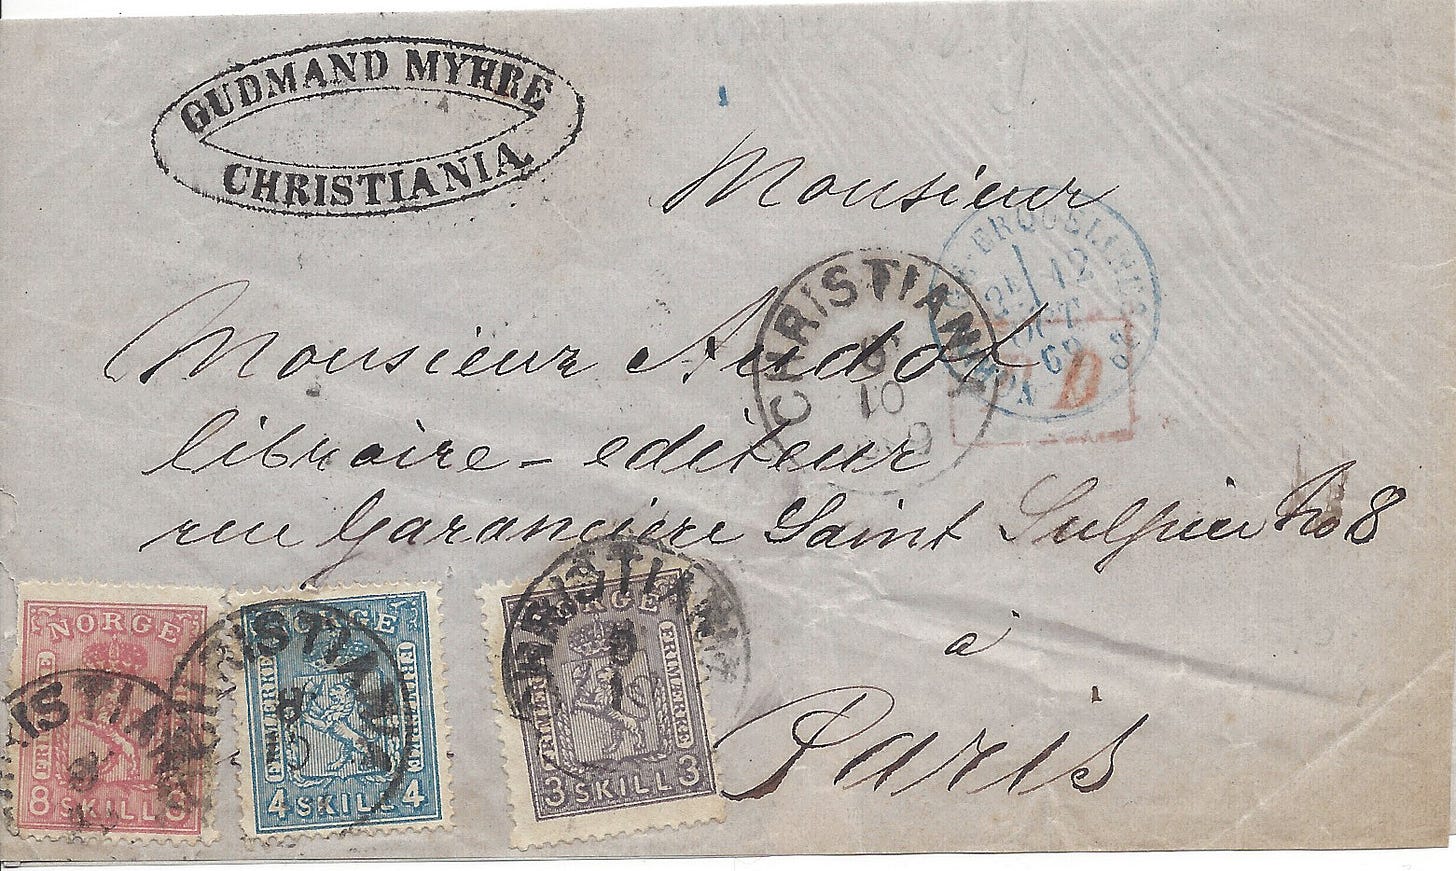 GUDMAND MYHRE
CHRISTIANIA.
Monsieur
ERQUELINES
2E 12
OCT
69
CHRISTIANIA
8
10
Monsieur Audot
D
libraire - editeur
rue Garancière Saint Sulpice No 8
à
Paris
NORGE
8 SKILL 8
NORGE
FRIMERKE FRIMERKE
4 SKILL 4
CHRISTIANIA
8
NORGE
FRIMERKE FRIMERKE
3 SKILL 3
CHRISTIANIA
8
10